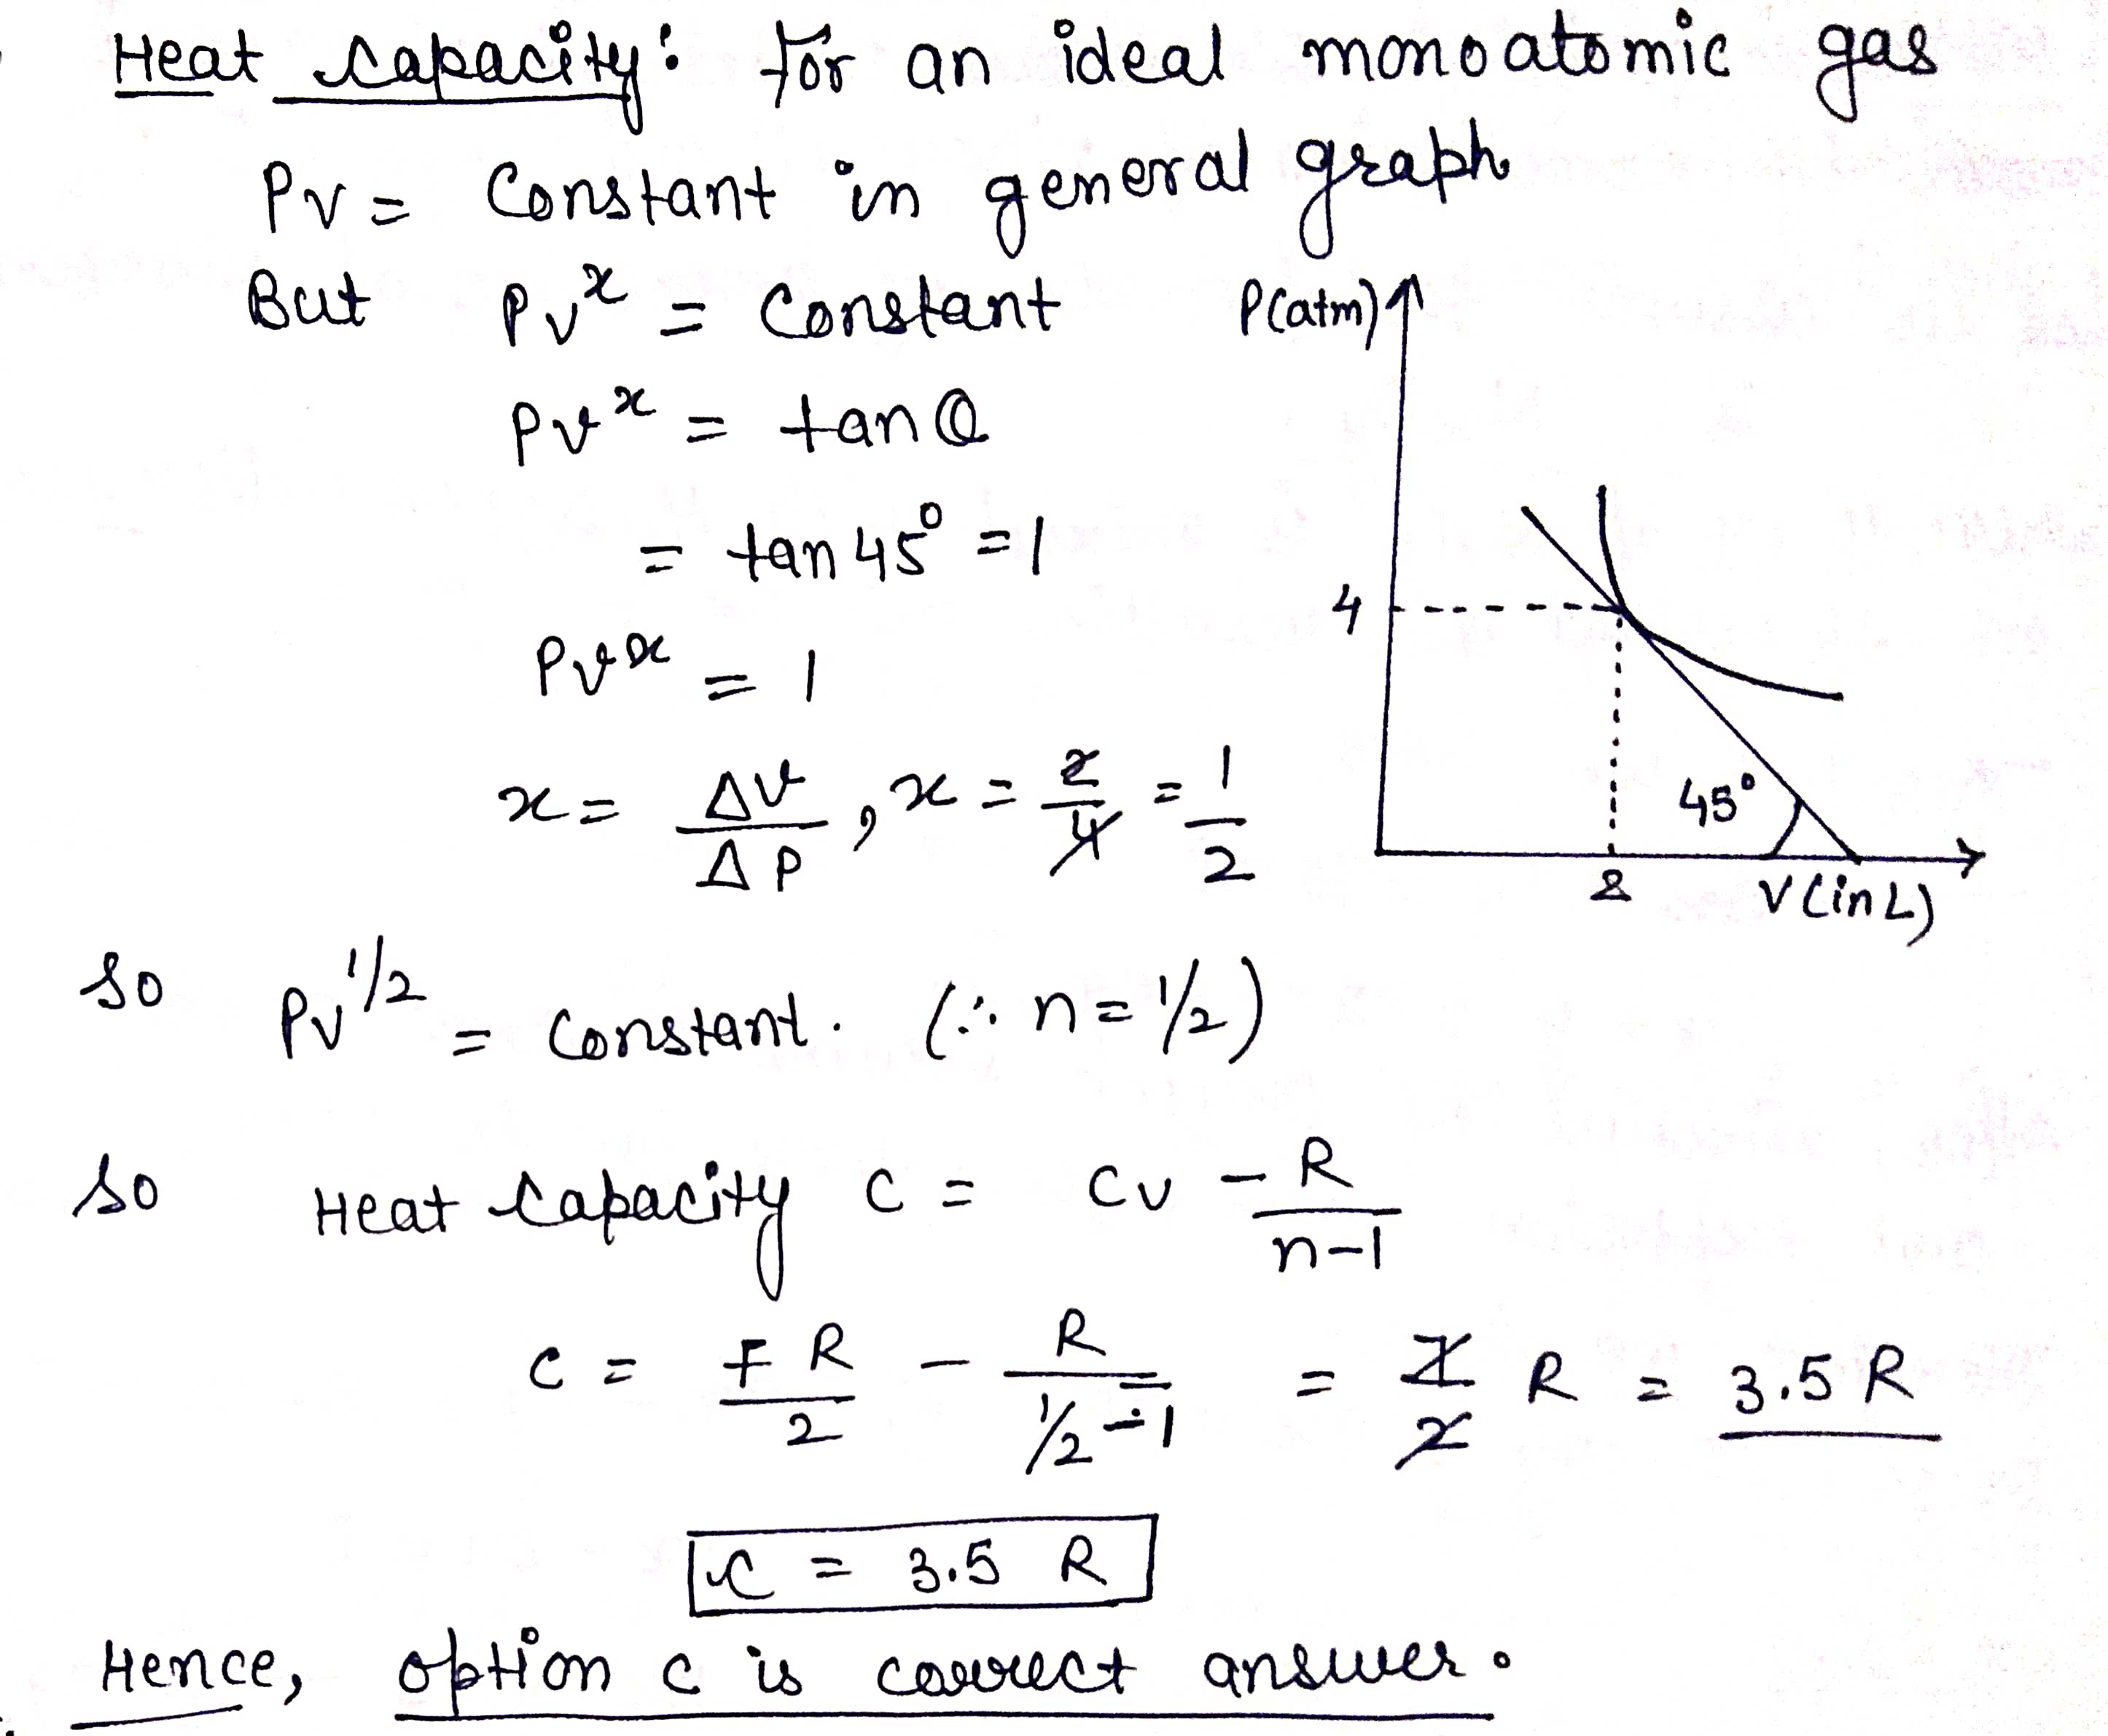 Heat capacity: For an ideal monoatomic gas
PV = Constant in general graph
But PV^x = Constant
P(atm)
PV^x = tanθ
= tan 45° = 1
4
PV^x = 1
x = ΔV/ΔP, x = 2/4 = 1/2
45°
2 V (in L)
So PV^1/2 = Constant. (∴ n = 1/2)
So Heat Capacity C = Cv - R/(n-1)
C = F R/2 - R/(1/2 - 1) = 7/2 R = 3.5 R
C = 3.5 R
Hence, option c is correct answer.